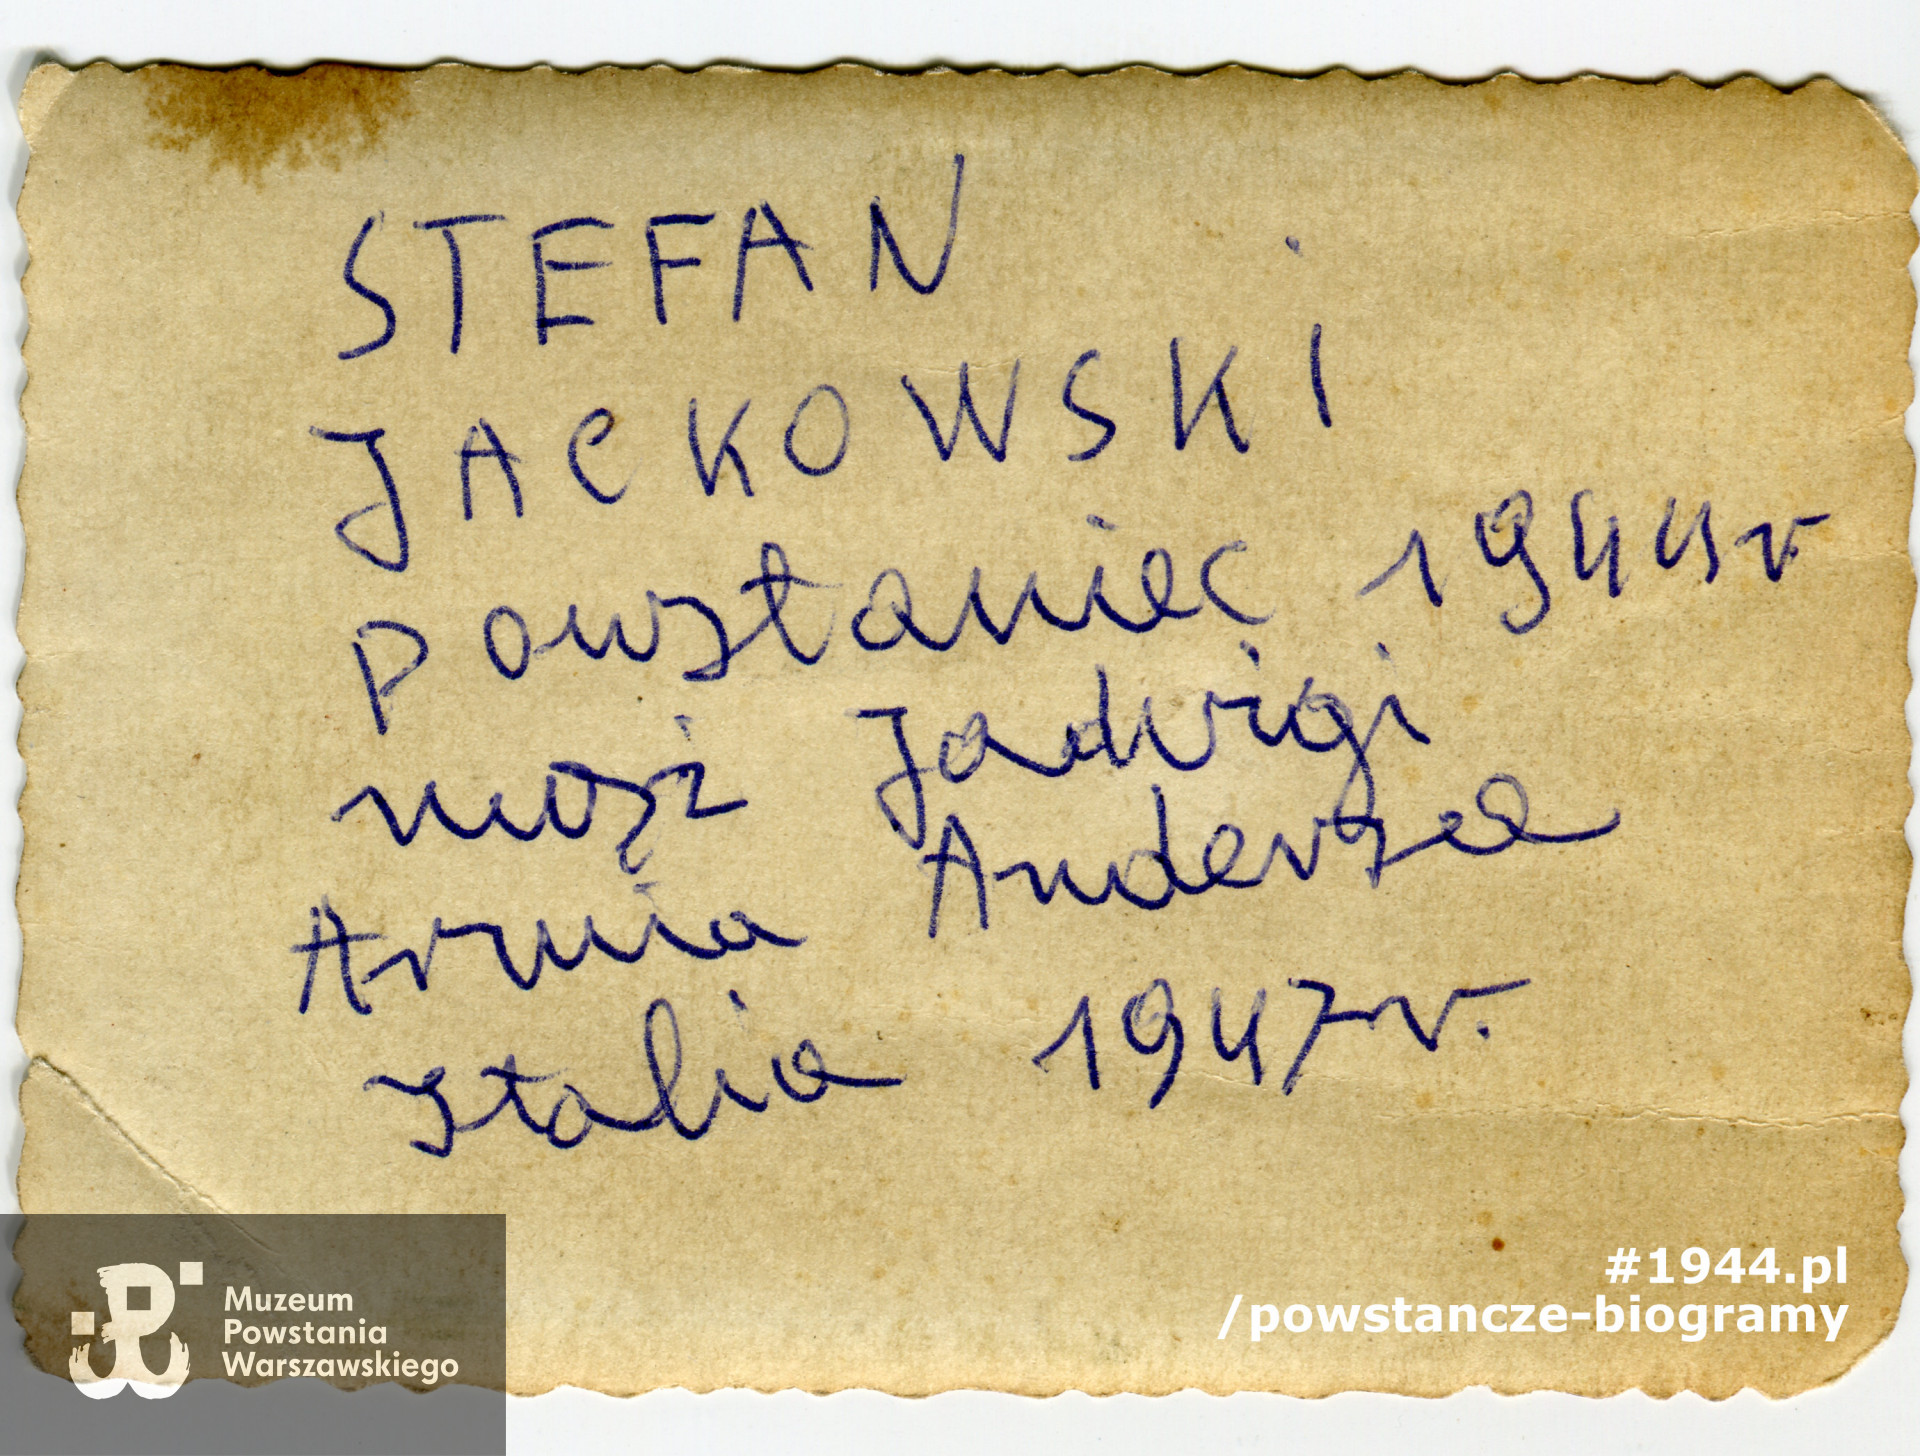 STEFAN
JACKOWSKI
powstaniec 1944r
mąż Jadwigi
Armia Andersa
Italia 1947r.
Muzeum
Powstania
Warszawskiego
#1944.pl
/powstancze-biogramy